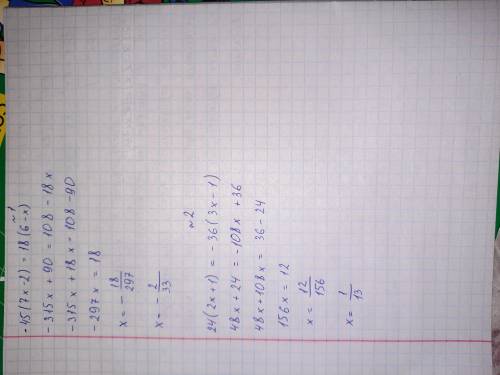 ~1
-45(7x-2) = 18(6-x)
-315x + 90 = 108 - 18x
-315x + 18x = 108 - 90
-297x = 18
x = - 18/297
x = - 2/33
~2
24(2x+1) = -36(3x-1)
48x + 24 = -108x + 36
48x + 108x = 36 - 24
156x = 12
x = 12/156
x = 1/13